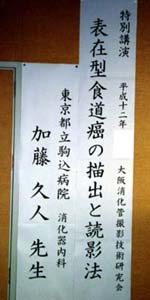 特別講演 平成十二年 大阪消化管撮影技術研究会
表在型食道癌の描出と読影法
東京都立駒込病院 消化器内科
加藤久人先生